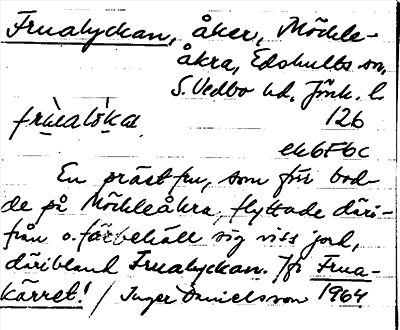 Frualyckan, åker, Möckle-
åkra, Edshults sn,
S. Vedbo hd. Jönk. l.
frùalø̀ka. 126
ek6F6c
En prästfru, som förr bod-
de på Möckleåkra, flyttade däri-
från o. förbehöll sig viss jord,
däribland Frualyckan. Jfr Frua-
kärret! / Inger Danielsson 1964